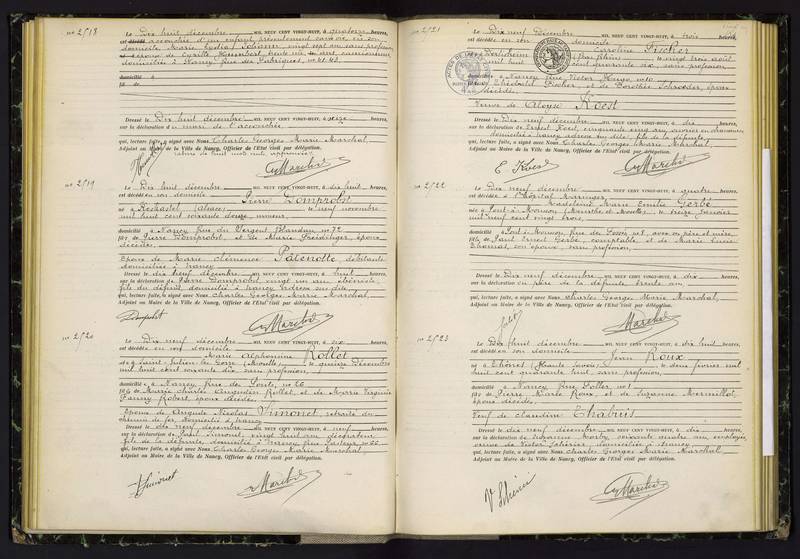 No 2518
Le Dix huit décembre MIL NEUF CENT VINGT-HUIT, à quatorze heures,
est accouchée d'un enfant présentement sans vie, en son
domicile Marie Lydia Johann, vingt sept ans sans profession
épouse de Cyrille Humbert, trente ans, camionneur
domiciliée à Nancy, rue des Fabriques, nos 41-43.
domicilié à
fil de
Dressé le Dix huit décembre MIL NEUF CENT VINGT-HUIT, à seize heures,
sur la déclaration du mari de l'accouchée
qui, lecture faite, a signé avec Nous Charles Georges Marie Marchal,
Adjoint au Maire de la Ville de Nancy, Officier de l'Etat civil par délégation.
No 2519
Le Dix huit décembre MIL NEUF CENT VINGT-HUIT, à dix huit heures,
est décédé en son domicile Pierre Domprobst
né à (Alsace) le neuf novembre
mil huit cent soixante douze, mineur,
domicilié à Nancy, rue du Sergent Blandan, no 72
fils de Pierre Domprobst, et de Marie époux
décédés.
Epoux de Marie Clémence Patenotte débitante
domiciliée à Nancy
Dressé le dix neuf décembre MIL NEUF CENT VINGT-HUIT, à huit heures,
sur la déclaration de Pierre Domprobst, vingt un ans, ébéniste,
fils du défunt, domicilié à Nancy
qui, lecture faite, a signé avec Nous Charles Georges Marie Marchal,
Adjoint au Maire de la Ville de Nancy, Officier de l'Etat civil par délégation.
Domprobst Marchal
No 2520
Le Dix neuf décembre MIL NEUF CENT VINGT-HUIT, à six heures,
est décédée en son domicile
Marie Alphonsine Rollet
née à Saint-Julien les Gorze (Moselle) le quinze Décembre
mil huit cent soixante dix, sans profession,
domiciliée à Nancy, rue de no 26
fille de Marie Charles Augustin Rollet, et de Marie Virginie
Fanny Robert, époux décédés.
Epouse de Auguste Nicolas Simonet, retraité du
chemin de fer, domicilié à Nancy
Dressé le dix neuf décembre MIL NEUF CENT VINGT-HUIT, à neuf heures,
sur la déclaration de Paul Simonet, vingt huit ans, décorateur
fils de la défunte, domicilié à Nancy, rue Pasteur no 55
qui, lecture faite, a signé avec Nous Charles Georges Marie Marchal,
Adjoint au Maire de la Ville de Nancy, Officier de l'Etat civil par délégation.
Simonet Marchal
No 2521
Le Dix neuf Décembre MIL NEUF CENT VINGT-HUIT, à trois heures,
est décédée en son domicile
Caroline Fischer
née à (Bas Rhin) le vingt trois août
mil huit cent quarante six, sans profession,
domiciliée à Nancy, rue Victor Hugo, no 10
fille de Théobald Fischer, et de Dorothée Schroeder, époux
décédés.
Veuve de Aloyse Koest
Dressé le Dix neuf décembre MIL NEUF CENT VINGT-HUIT, à dix heures,
sur la déclaration de Ernest Koest, cinquante cinq ans, ouvrier en chaussures
domicilié à Nancy, même adresse, fils de la défunte,
qui, lecture faite, a signé avec Nous Charles Georges Marie Marchal,
Adjoint au Maire de la Ville de Nancy, Officier de l'Etat civil par délégation.
E Koest Marchal
No 2522
Le Dix neuf décembre MIL NEUF CENT VINGT-HUIT, à quatre heures,
est décédée à l'hôpital Maringer,
Madeleine Marie Emilie Gerbé
née à Pont-à-Mousson (Meurthe et Moselle) le treize janvier
mil neuf cent vingt trois,
domiciliée à Pont à Mousson, rue des Fossés, avec ses père et mère,
fille de Paul Ernest Gerbé, comptable, et de Marie Lucie
Thomas, son épouse, sans profession.
Dressé le Dix neuf décembre MIL NEUF CENT VINGT-HUIT, à dix heures,
sur la déclaration du père de la défunte, trente ans,
qui, lecture faite, a signé avec Nous Charles Georges Marie Marchal,
Adjoint au Maire de la Ville de Nancy, Officier de l'Etat civil par délégation.
Marchal
No 2523
Le Dix huit décembre MIL NEUF CENT VINGT-HUIT, à dix huit heures,
est décédé en son domicile
Jean Roux
né à Thônes (Haute Savoie) le deux février mil
huit cent quarante huit, sans profession,
domicilié à Nancy, rue Poller no 1
fils de Pierre Marie Roux, et de Suzanne Mermillod,
époux décédés.
Veuf de Claudine Chabuis
Dressé le dix neuf décembre MIL NEUF CENT VINGT-HUIT, à dix heures,
sur la déclaration de Suzanne soixante quatre ans, employée,
veuve de Victor domiciliée à Nancy
qui, lecture faite, a signé avec Nous Charles Georges Marie Marchal
Adjoint au Maire de la Ville de Nancy, Officier de l'Etat civil par délégation.
Marchal